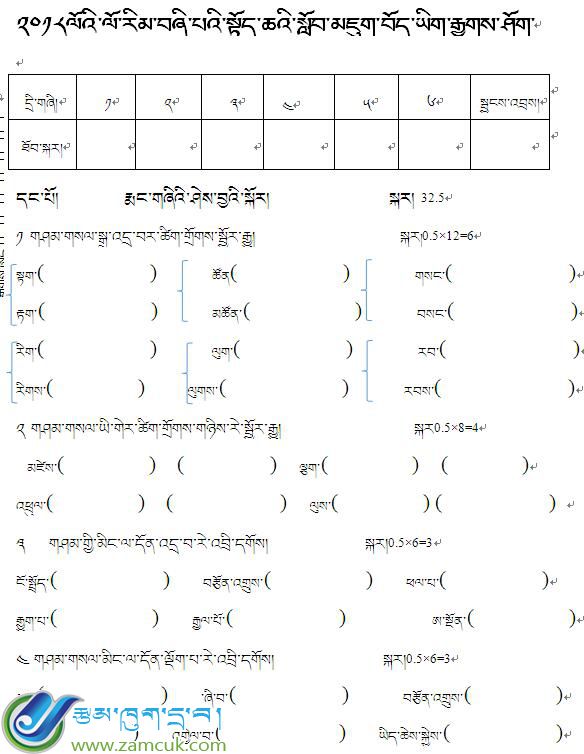 ༢༠༡༨ལོའི་ལོ་རིམ་བཞི་པའི་སྟོད་ཆའི་སློབ་མཇུག་བོད་ཡིག་རྒྱུགས་ཤོག
དྲི་གཞི། ༡ ༢ ༣ ༤ ༥ ༦ སྦྱངས་འབྲས།
ཐོབ་སྐར།
དང་པོ། རྨང་གཞིའི་ཤེས་བྱའི་སྐོར། སྐར། 32.5
༡ གཤམ་གསལ་སྒྲ་འདྲ་བར་ཚིག་གྲོགས་སྦྱོར་རྒྱུ། སྐར།0.5×12=6
སྟག་( ) ཚོན( ) གསང་( )
རྟག་( ) མཚོན་( ) བསང་( )
རིག་( ) ལུག་( ) རབ་( )
རིགས་( ) ལུགས་( ) རབས་( )
༢ གཤམ་གསལ་ཡི་གེར་ཚིག་གྲོགས་གཉིས་རེ་སྦྱོར་རྒྱུ། སྐར0.5×8=4
མཛེས་( ) ( ) ལྕག་( ) ( )
འཕྲུལ་( ) ( ) ལུས་( ) ( )
༣ གཤམ་གྱི་མིང་ལ་དོན་འདྲ་བ་རེ་འབྲི་དགོས། སྐར།0.5×6=3
ངོ་སྤྲོད་( ) བརྩོན་འགྲུས་( ) ཕལ་པ་( )
རྒྱུག་པ་( ) རྒྱལ་པོ་( ) ཨ་སྔོན་( )
༤ གཤམ་གསལ་མིང་ལ་དོན་ལྡོག་པ་རེ་འབྲི་དགོས། སྐར།0.5×6=3
( ) ཞི་བ་( ) བརྩོན་འགྲུས་( )
( ) འགུལ་བ་( ) ཡིད་ཆེས་སྐྱེས་( )
རྩམ་ཁུག་དྲ་བ།
www.zamcuk.com